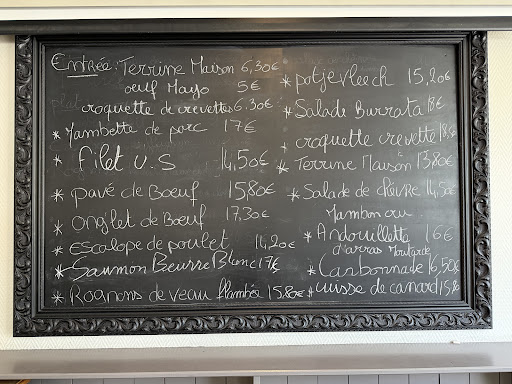 Entrée: Terrine Maison 6,30€
oeuf Mayo 5€
croquette de crevettes 6.30€
* Jambette de porc 17€
* filet U.S 14,50€
* pavé de Boeuf 15,80€
* onglet de Boeuf 17,30€
* Escalope de poulet 14,20€
* Saumon Beurre Blanc 17€
* Rognons de veau flambée 15.80€
* potjevleech 15,20€
* Salade Burrata 18€
* croquette crevette
* Terrine Maison 13,80€
* Salade de chèvre 14,50€
Jambon cru
* Andouillette 16€
d'arras Moutarde
* Carbonnade 16,50€
* cuisse de canard